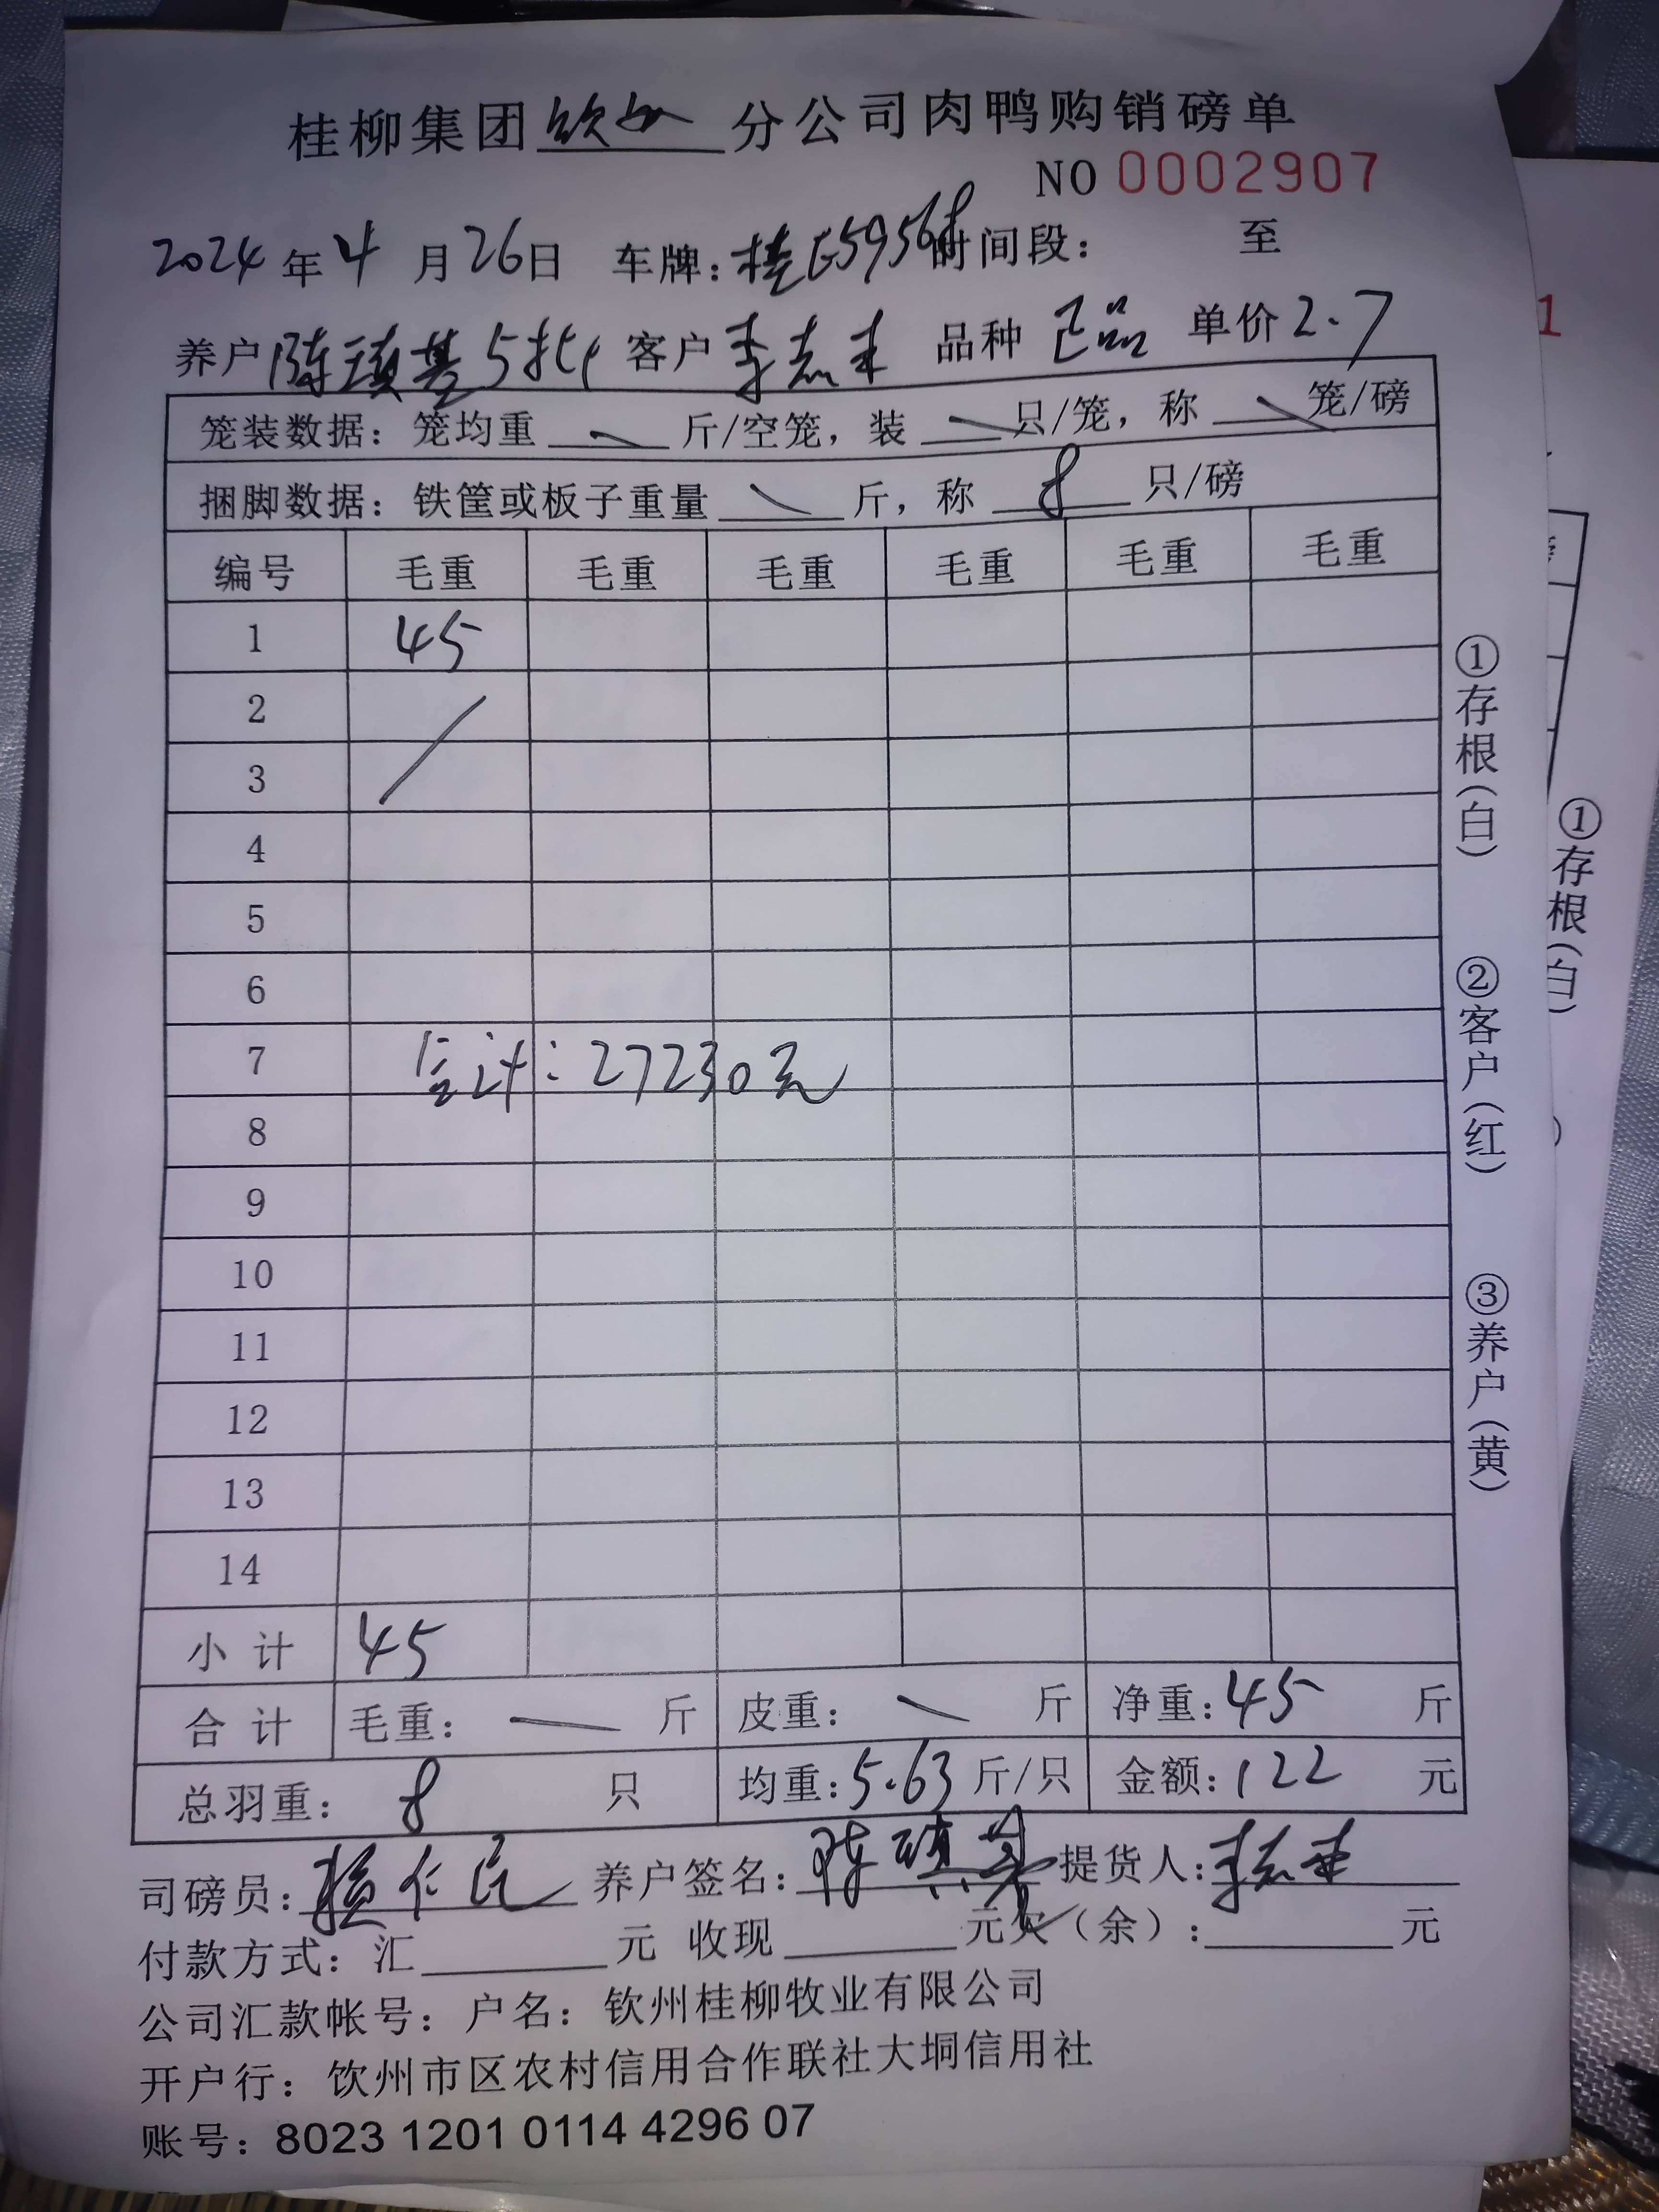 桂柳集团钦州分公司肉鸭购销磅单
NO 0002907
2024年4月26日 车牌:桂E5956 时间段: 至
养户 陈 基5批 客户 李志 品种 品 单价2.7
笼装数据: 笼均重 斤/空笼, 装 只/笼, 称 笼/磅
捆脚数据: 铁筐或板子重量 斤, 称 8 只/磅
编号 毛重 毛重 毛重 毛重 毛重 毛重
1 45
2
3
4
5
6
7 合计: 27230元
8
9
10
11
12
13
14
小计 45
合计 毛重: — 斤 皮重: 斤 净重: 45 斤
总羽重: 8 只 均重: 5.63 斤/只 金额: 122 元
司磅员: 仁 养户签名: 陈 基 提货人: 李志
付款方式: 汇 元 收现 元欠(余): 元
公司汇款帐号: 户名: 钦州桂柳牧业有限公司
开户行: 钦州市区农村信用合作联社大垌信用社
账号: 8023 1201 0114 4296 07
①存根(白) ②客户(红) ③养户(黄)
1
①存根(白)